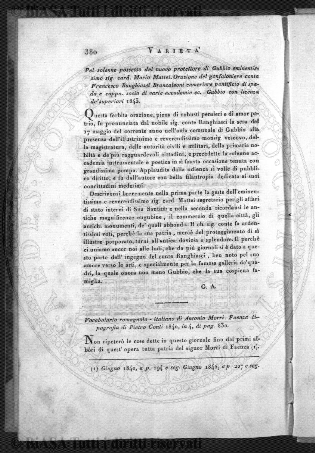 © BIASA Tutti i diritti riservati
380
VARIETA'
Pel solenne possesso del nuovo protettore di Gubbio eminentis
simo sig. card. Mario Mattei. Orazione del gonfaloniere conte
Francesco Ranghiasci Brancaleoni cameriere pontificio di spa-
da e cappa, socio di varie accademie ec. Gubbio con licenza
de' superiori 1843.
Questa forbita orazione, piena di robusti pensieri e di amor pa-
trio, fu pronunciata dal nobile sig. conte Ranghiasci la sera del
17 maggio del corrente anno nell'aula comunale di Gubbio alla
presenza dell'illustrissimo e reverendissimo monsig. vescovo, del-
la magistratura, delle autorità civili e militari, della primaria no-
biltà e de' più ragguardevoli cittadini, e precedette la solenne ac-
cademia instrumentale e poetica in sì fausta occasione tenuta con
grandissima pompa. Applaudita dalle adunanza si volle di pubbli-
co diritto, e fu dall'autore con bella filantropia dedicata ai suoi
concittadini medesimi.
Ornatissimamente nella prima parte la geste dell'eminen-
tissimo e reverendissimo sig. card. Mattei segretario per gli affari
di stato interni di Sua Santità: e nella seconda ricordansi le an-
tiche magnificenze eugubine, il commercio di quella città, gli
antichi monumenti, de' quali abbonda. Il ch. sig. conte fa arden-
tissimi voti, perchè la sua patria, mercè del proteggimento di sì
illustre porporato, torni all'antico lustro e splendore. Il perchè
ci uniamo ancor noi alle lodi, che da più giornali si è data a que-
sto parto dell'ingegno del conte Ranghiasci, ben noto pel suo
amore verso le arti, e specialmente per la famosa galleria de' qua-
dri, la quale onora non meno Gubbio, che la sua cospicua fa-
miglia.
G. A.
Vocabolario romagnolo-italiano di Antonio Morri. Faenza ti-
pografia di Pietro Conti 1840, in 4, di pag. 830.
Non ripeterò le cose dette in questo giornale fino dai primi al-
bori di quest'opera tutta patria del signor Morri di Faenza (1).
(1) Giugno 1840, a p. 194 e seg. Giugno 1842, a p. 227 e seg.
© BIASA Tutti i diritti riservati